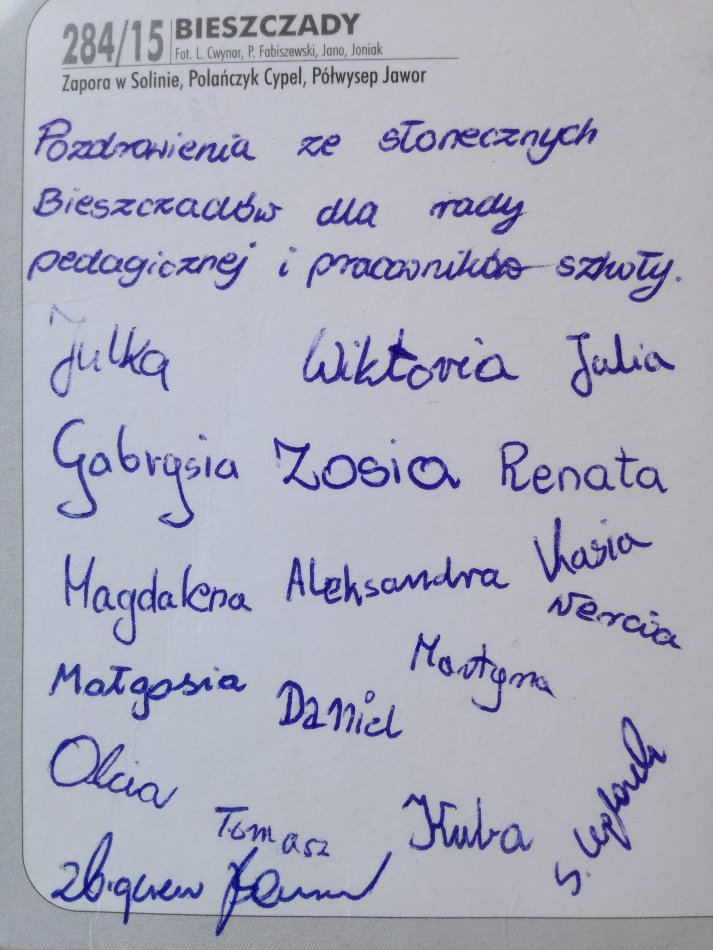 284/15 BIESZCZADY
Fot. L. Cwynar, P. Fabiszewski, Jano, Joniak
Zapora w Solinie, Polańczyk Cypel, Półwysep Jawor
Pozdrowienia ze słonecznych
Bieszczadów dla rady
pedagicznej i pracowników szkoły.
Julka Wiktoria Julia
Gabrysia Zosia Renata
Magdalena Aleksandra Kasia
Wercia
Małgosia Daniel Martyna
Olcia Tomasz Kuba
Zbigniew